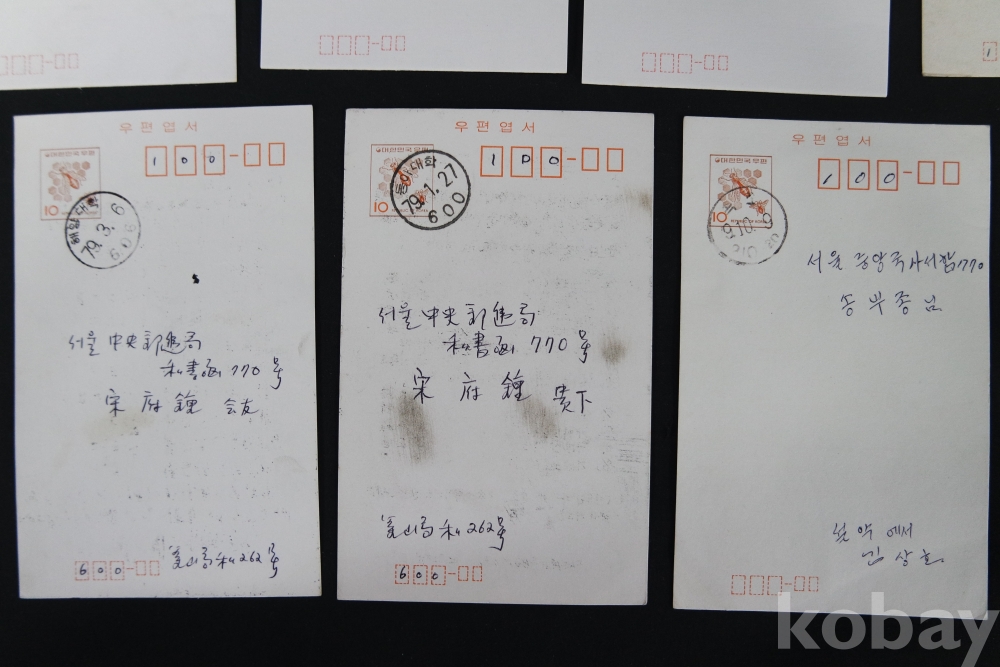 우편엽서
대한민국우편
10
해양대학
79.3.6
606
100
서울 中央郵逓局
私書函 770号
宋府鍾 会友
釜山局 私262号
600
우편엽서
대한민국우편
10
동아대학
79.1.27
600
100
서울 中央郵逓局
私書函 770号
宋府鍾 貴下
釜山局 私262号
600
우편엽서
대한민국우편
10
100
서울 중앙국사서함 770
송부종님
에서
kobay